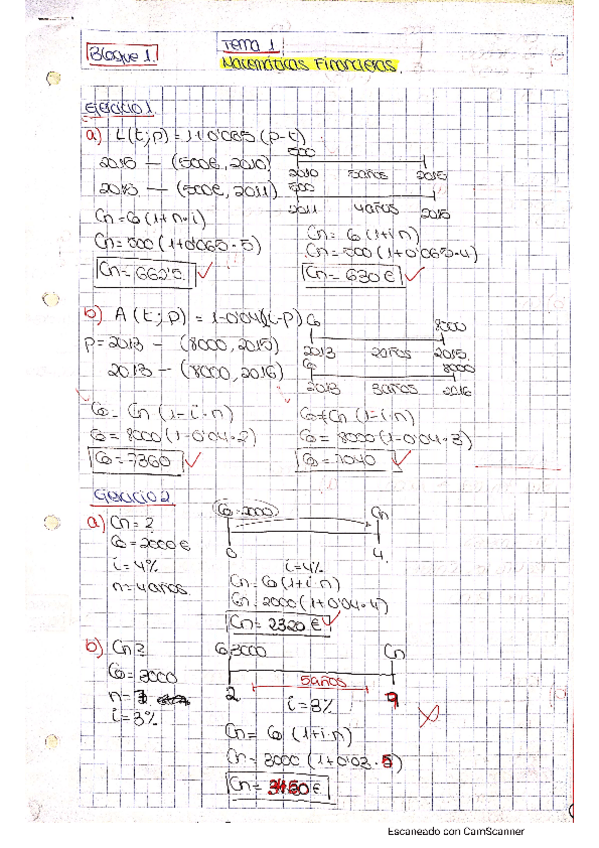 Bloque 1.
Tema 1
Matemáticas Financieras.
Ejercicio 1.
a) L(t;p) = 1+0'065 (p-t)
2015 — (500€, 2010)
2015 — (500€, 2011)
500
2010 5años 2015
500
2011 4años 2015
Cn = Co (1+n·i)
Cn = 500 (1+0'065·5)
Cn = 662'5. ✓
Cn = Co (1+i·n)
Cn = 500 (1+0'065·4)
Cn = 630€ ✓
b) A (t;p) = 1-0'04(t-p)
p=2013 — (8000, 2015)
2013 — (8000, 2016)
Co 8000
2013 2años 2015
Co 8000
2013 3años 2016
Co = Cn (1-i·n)
Co = 8000 (1-0'04·2)
Co = 7360 ✓
Co = Cn (1-i·n)
Co = 8000 (1-0'04·3)
Co = 7040 ✓
Ejercicio 2.
a) Cn = ?
Co = 2000€
i = 4%
n = 4años.
Co=2000 Cn
0 4
i=4%
Cn = Co (1+i·n)
Cn = 2000 (1+0'04·4)
Cn = 2320€ ✓
b) Cn?
Co = 3000
n =
i = 3%
Co 3000 Cn
5años
2 7
i = 3%
Cn = Co (1+i·n)
Cn = 3000 (1+0'03·5)
Cn = 3450€
Escaneado con CamScanner